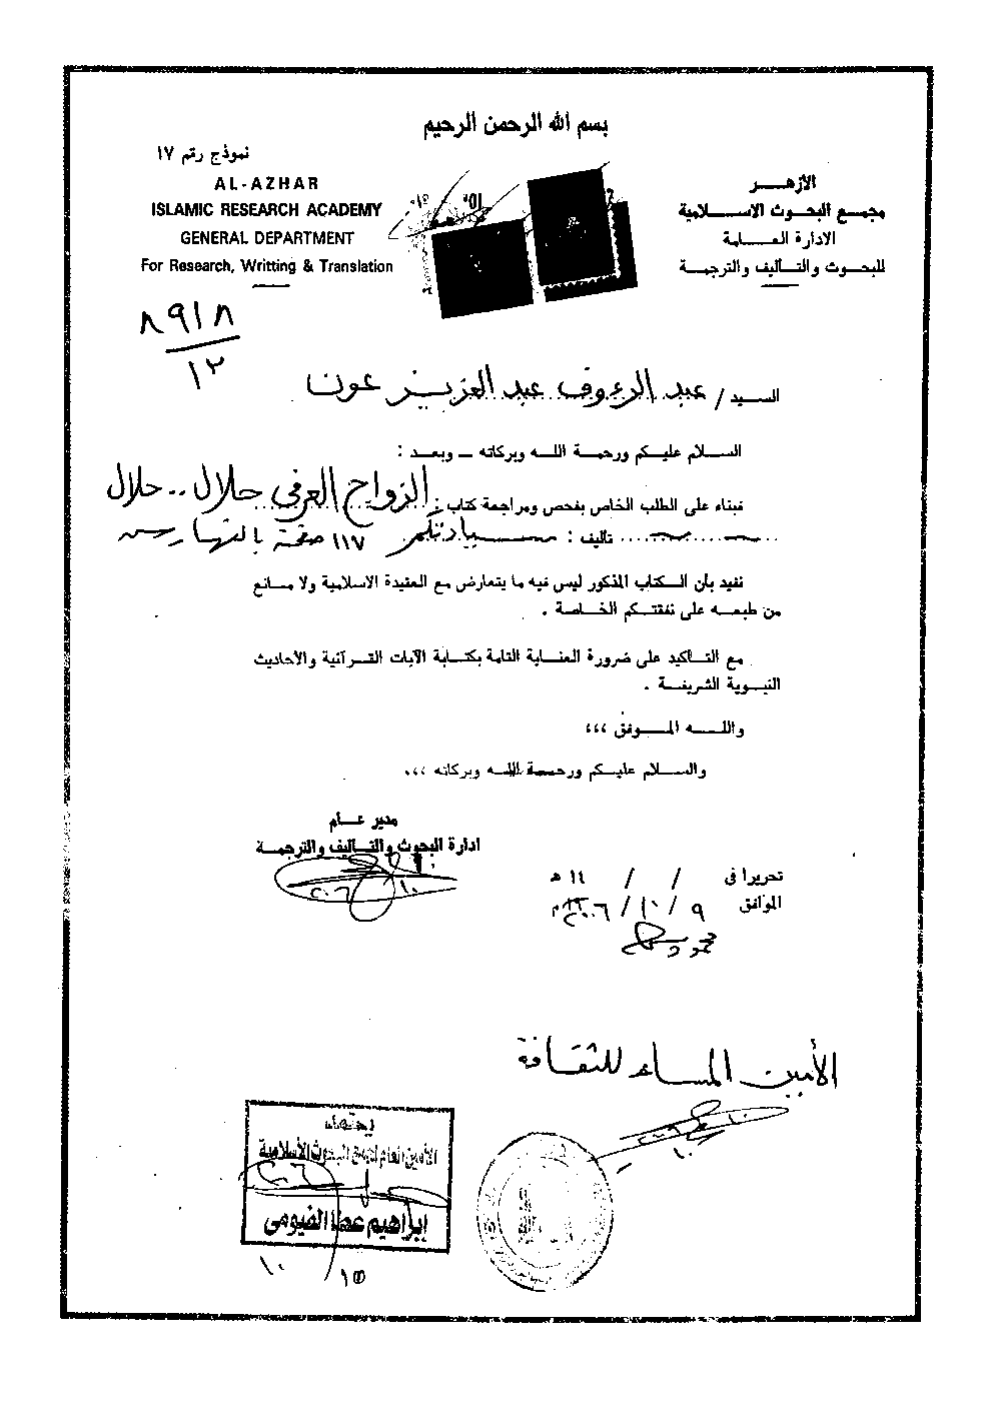 بسم الله الرحمن الرحيم
نموذج رقم ١٧
AL-AZHAR
ISLAMIC RESEARCH ACADEMY
GENERAL DEPARTMENT
For Research, Writting & Translation
الأزهــر
مجمـع البحـوث الاسـلامية
الادارة العـامة
للبحـوث والتـأليف والترجمـة
٨٩١٨
١٢
السـيد / عبد الرءوف عبد العزيز عون
السـلام عليـكم ورحمـة اللـه وبركاته ــ وبعـد :
فبناء على الطلب الخاص بفحص ومراجعة كتاب : الزواج العرفي حلال .. حلال
تأليف : ١١٧ صفحة
نفيد بأن الـكتاب المذكور ليس فيه ما يتعارض مع العقيدة الاسلامية ولا مـانع
من طبعـه على نفقتـكم الخـاصة .
مع التـأكيد على ضرورة العنـاية التامة بكتـابة الآيات القـرآنية والأحاديث
النبـوية الشريفـة .
واللـه المـوفق ،،،
والسـلام عليـكم ورحمـة اللـه وبركاته ،،،
مدير عـام
ادارة البحوث والتـأليف والترجمـة
تحريرا فى / / ١٤ هـ
الموافق ٩ / ١٠ / ٢٠٠٦ م
الأمين المساعد للثقافة
يعتمد
الأمين العام لمجمع البحوث الأسلامية
إبراهيم عطا الفيومى
١٥
١٠